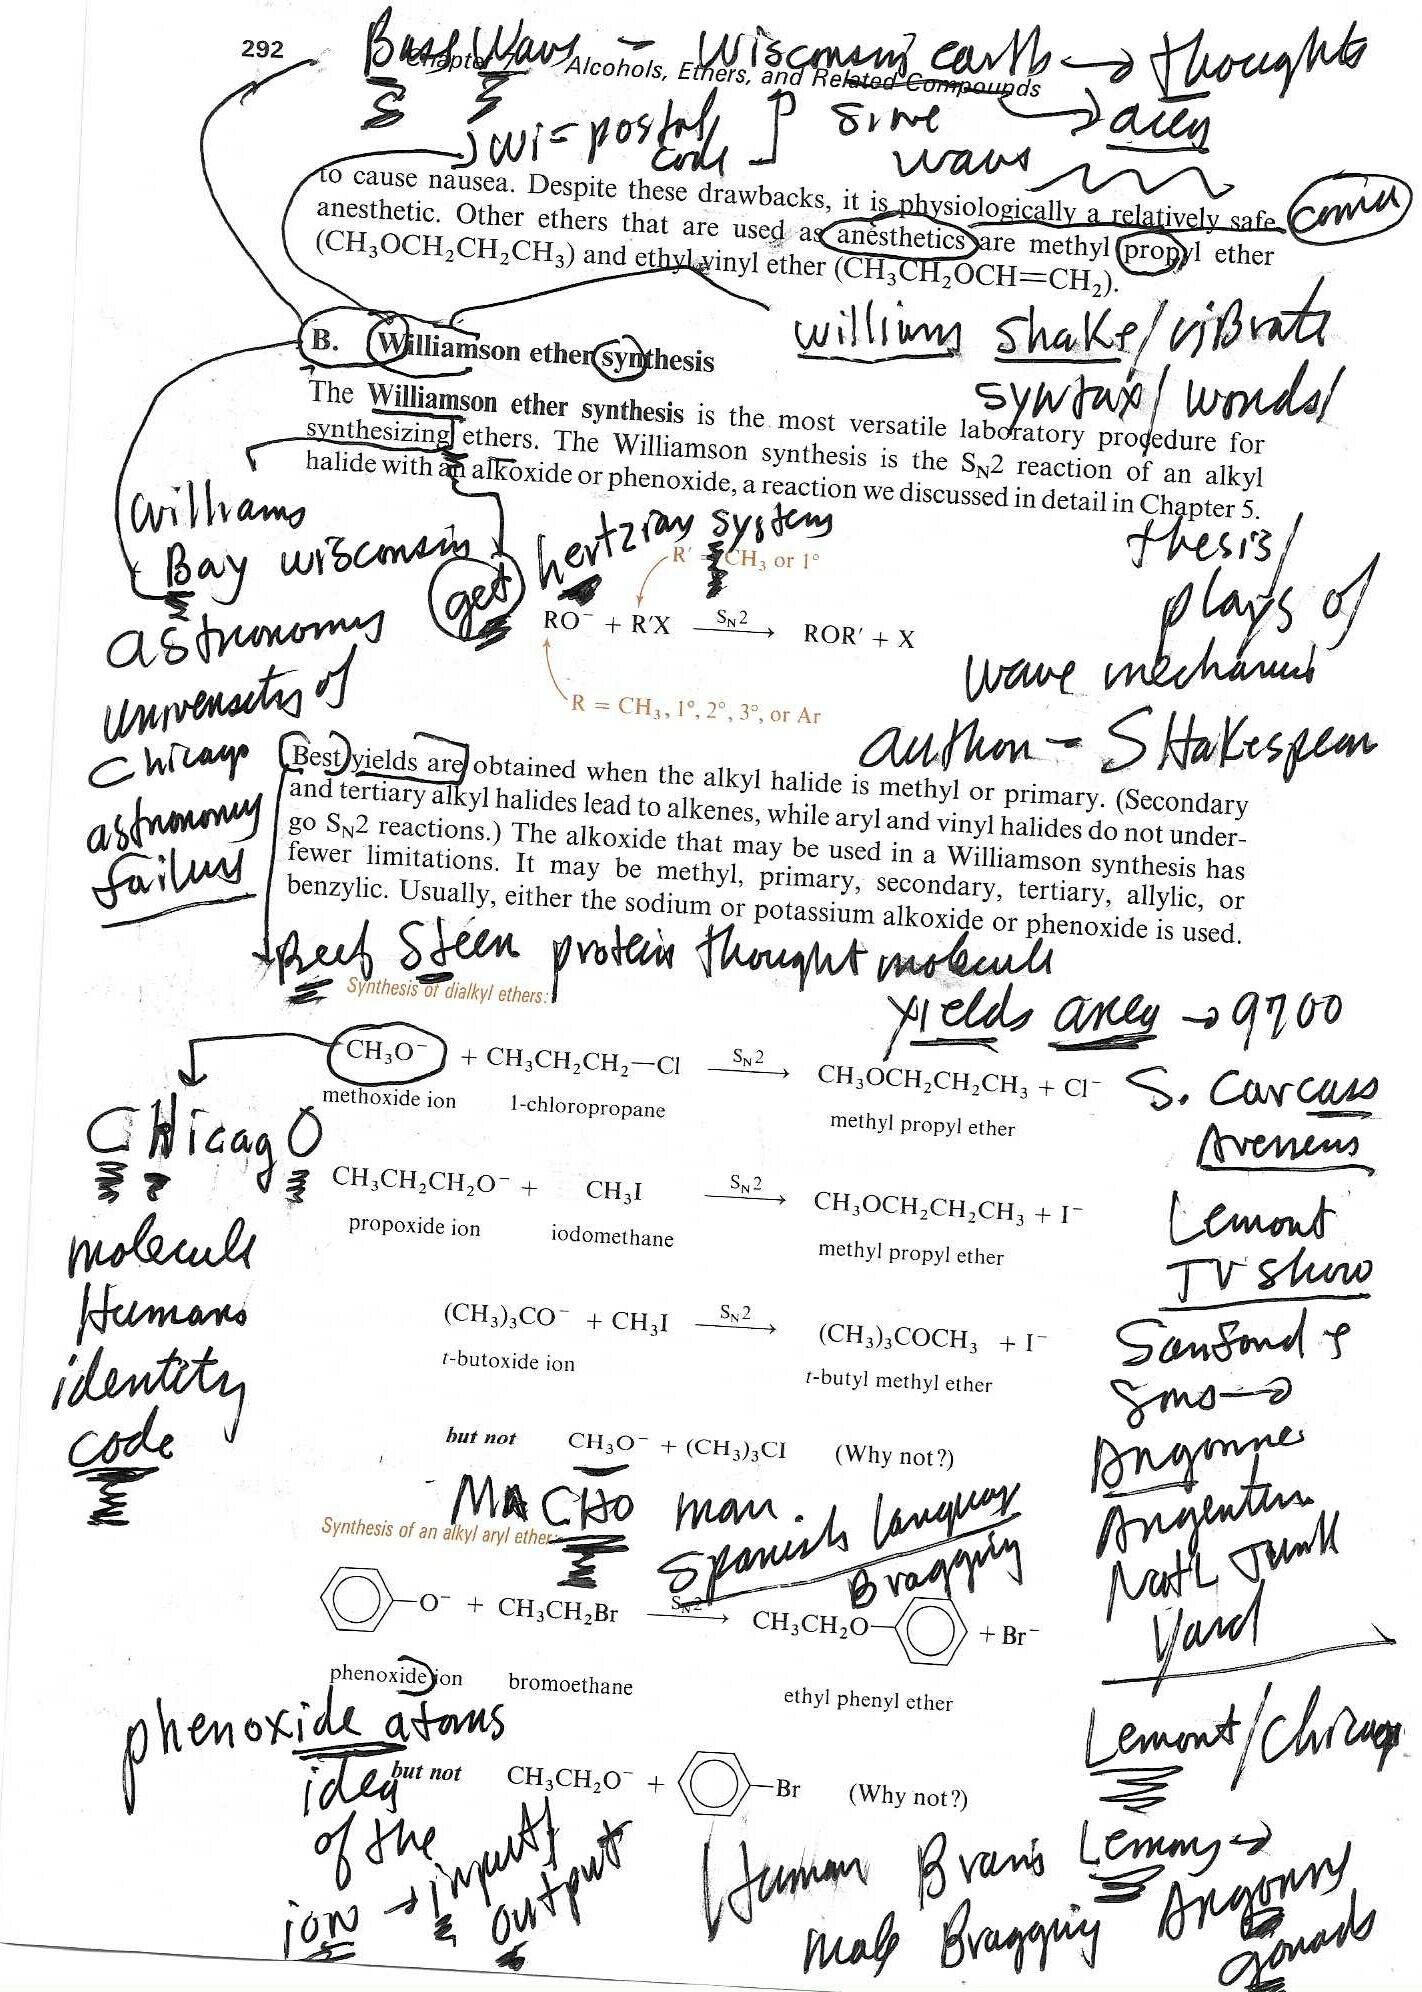 292
Chapter 7 Alcohols, Ethers, and Related Compounds
Wisconsin earth → thoughts
wi = postal code
sine waves
area
to cause nausea. Despite these drawbacks, it is physiologically a relatively safe
anesthetic. Other ethers that are used as anesthetics are methyl propyl ether
(CH₃OCH₂CH₂CH₃) and ethyl vinyl ether (CH₃CH₂OCH=CH₂).
williams shake / viBrate
B. Williamson ether synthesis
syntax / words /
The Williamson ether synthesis is the most versatile laboratory procedure for
synthesizing ethers. The Williamson synthesis is the SN2 reaction of an alkyl
halide with an alkoxide or phenoxide, a reaction we discussed in detail in Chapter 5.
williams
Bay wisconsin
get hertzian systems
thesis /
plays of
wave mechanics
author – SHakespear
R' = CH₃ or 1°
RO⁻ + R'X SN2 → ROR' + X
R = CH₃, 1°, 2°, 3°, or Ar
astronomy
university of
Chicago
astronomy
failure
Best yields are obtained when the alkyl halide is methyl or primary. (Secondary
and tertiary alkyl halides lead to alkenes, while aryl and vinyl halides do not under-
go SN2 reactions.) The alkoxide that may be used in a Williamson synthesis has
fewer limitations. It may be methyl, primary, secondary, tertiary, allylic, or
benzylic. Usually, either the sodium or potassium alkoxide or phenoxide is used.
Beef Steer protein thought molecule
Synthesis of dialkyl ethers:
yields area → 9700
S. Carcass
Avenues
CH₃O⁻ + CH₃CH₂CH₂—Cl SN2 → CH₃OCH₂CH₂CH₃ + Cl⁻
methoxide ion 1-chloropropane methyl propyl ether
CHicagO
CH₃CH₂CH₂O⁻ + CH₃I SN2 → CH₃OCH₂CH₂CH₃ + I⁻
propoxide ion iodomethane methyl propyl ether
molecule
Humans
identity
code
Lemont
TV show
Sanford &
sons →
Argonne
Argentine
Nat'L Junk
Yard
(CH₃)₃CO⁻ + CH₃I SN2 → (CH₃)₃COCH₃ + I⁻
t-butoxide ion t-butyl methyl ether
but not CH₃O⁻ + (CH₃)₃CI (Why not?)
MACHO man
Spanish language
Bragging
Synthesis of an alkyl aryl ether:
O⁻ + CH₃CH₂Br SN2 → CH₃CH₂O + Br⁻
phenoxide ion bromoethane ethyl phenyl ether
phenoxide atoms
idea
of the
ion → input/
output
Lemont / Chicago
but not CH₃CH₂O⁻ + Br (Why not?)
Human Brains Lemons →
male Bragging Argonne
gonads